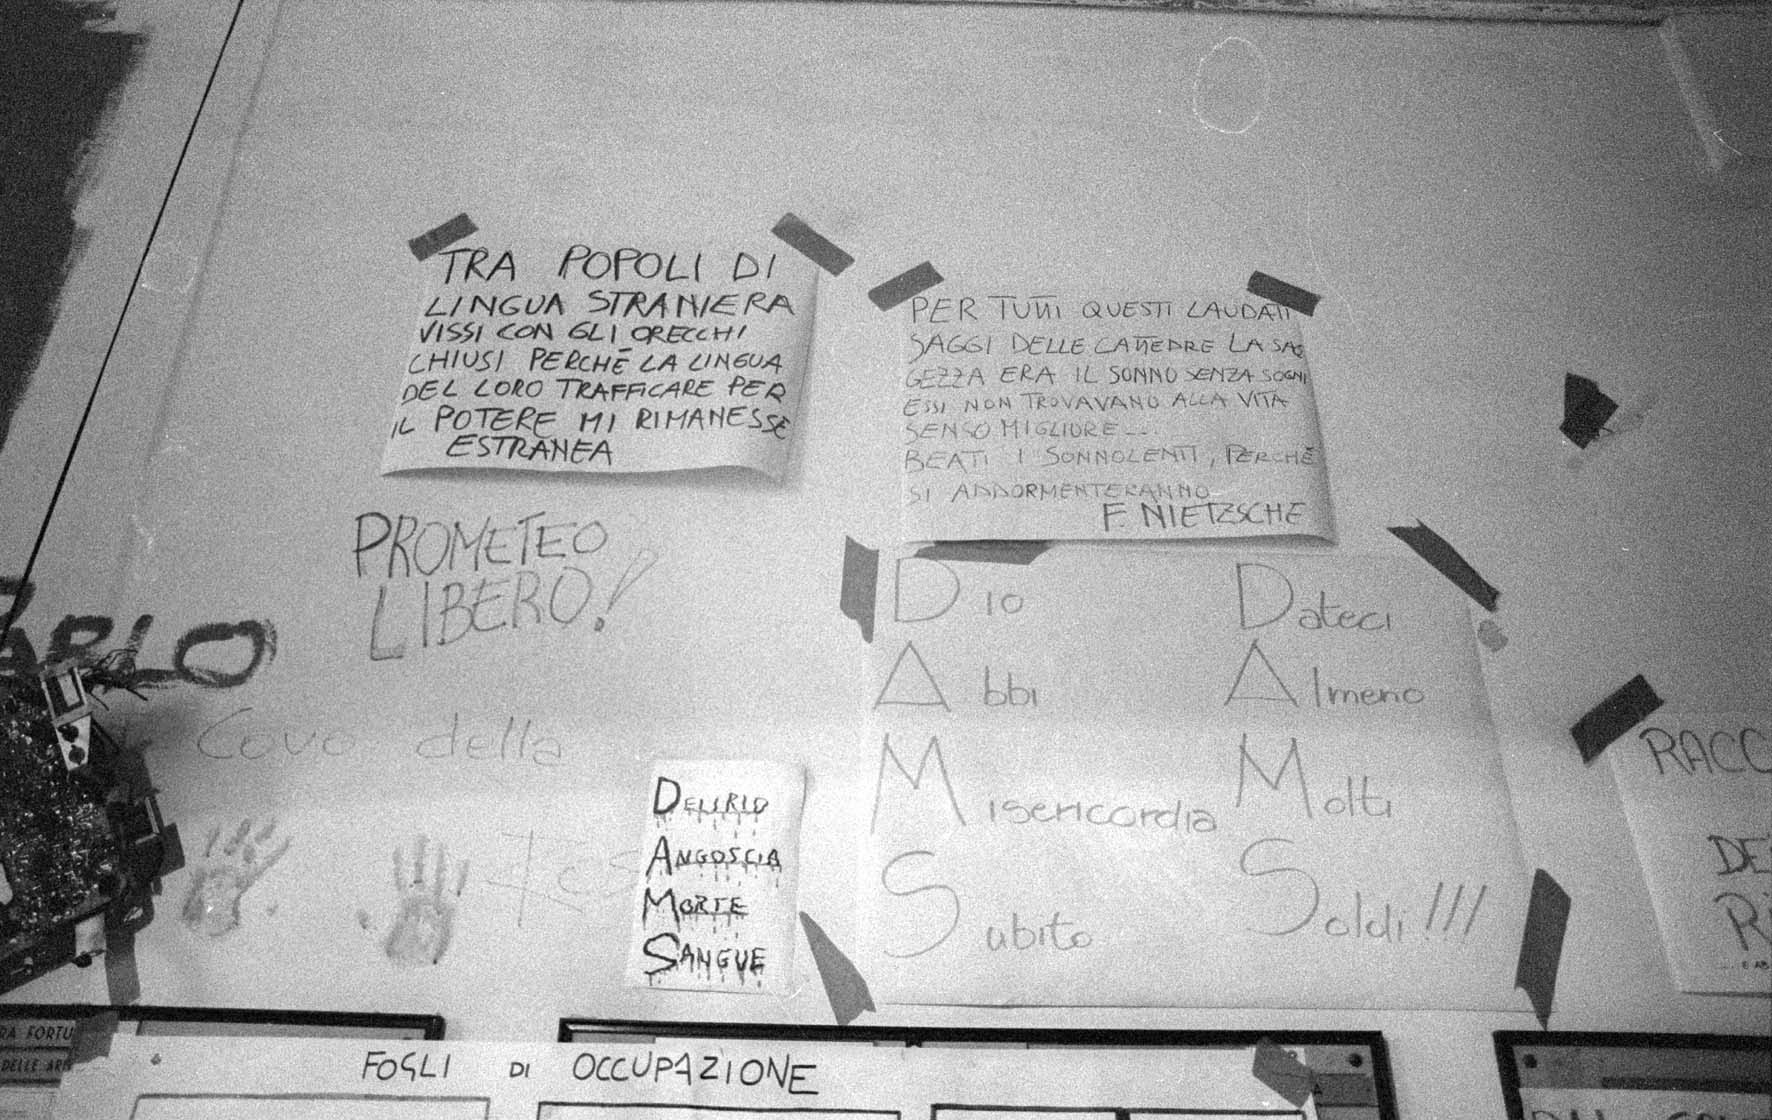 TRA POPOLI DI
LINGUA STRANIERA
VISSI CON GLI ORECCHI
CHIUSI PERCHÉ LA LINGUA
DEL LORO TRAFFICARE PER
IL POTERE MI RIMANESSE
ESTRANEA
PER TUTTI QUESTI LAUDATI
SAGGI DELLE CATTEDRE LA SAG
GEZZA ERA IL SONNO SENZA SOGNI
ESSI NON TROVAVANO ALLA VITA
SENSO MIGLIORE ...
BEATI I SONNOLENTI, PERCHÉ
SI ADDORMENTERANNO
F. NIETZSCHE
PROMETEO
LIBERO!
ARLO
Covo della
Dio
Abbi
Misericordia
Subito
Dateci
Almeno
Molti
Soldi!!!
DELIRIO
ANGOSCIA
MORTE
SANGUE
RACC
DE
RI
RA FORTU
DELLE ARTI
FOGLI DI OCCUPAZIONE